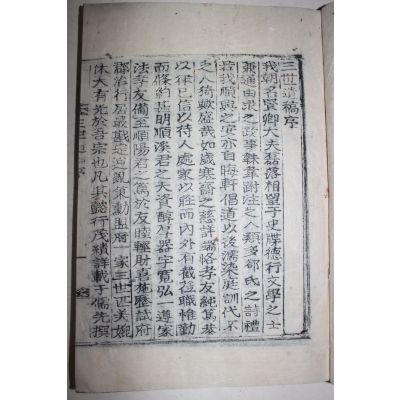 三世遺稿序
我朝名賢卿大夫磊落相望于史牒德行文學之士
兼通由求之政事韎韋跗注之人頗多郤氏之詩禮
若我順興之安亦自晦軒倡道以後濡染庭訓代不
乏人猗歟盛哉如歲寒齋之慈詳端恪孝友純篤恭
以律己信以待人處家以莊而內外有截莅職惟勤
而條約甚明順溪君之天資醇厚器宇寬弘一遵家
法孝友備至順陽君之篤於友睦輕財喜施歷試府
郡治行居最戡定逆亂策勳盟府一家三世匹美媲
休大有光於吾宗也凡其懿行茂績詳載于儒先撰